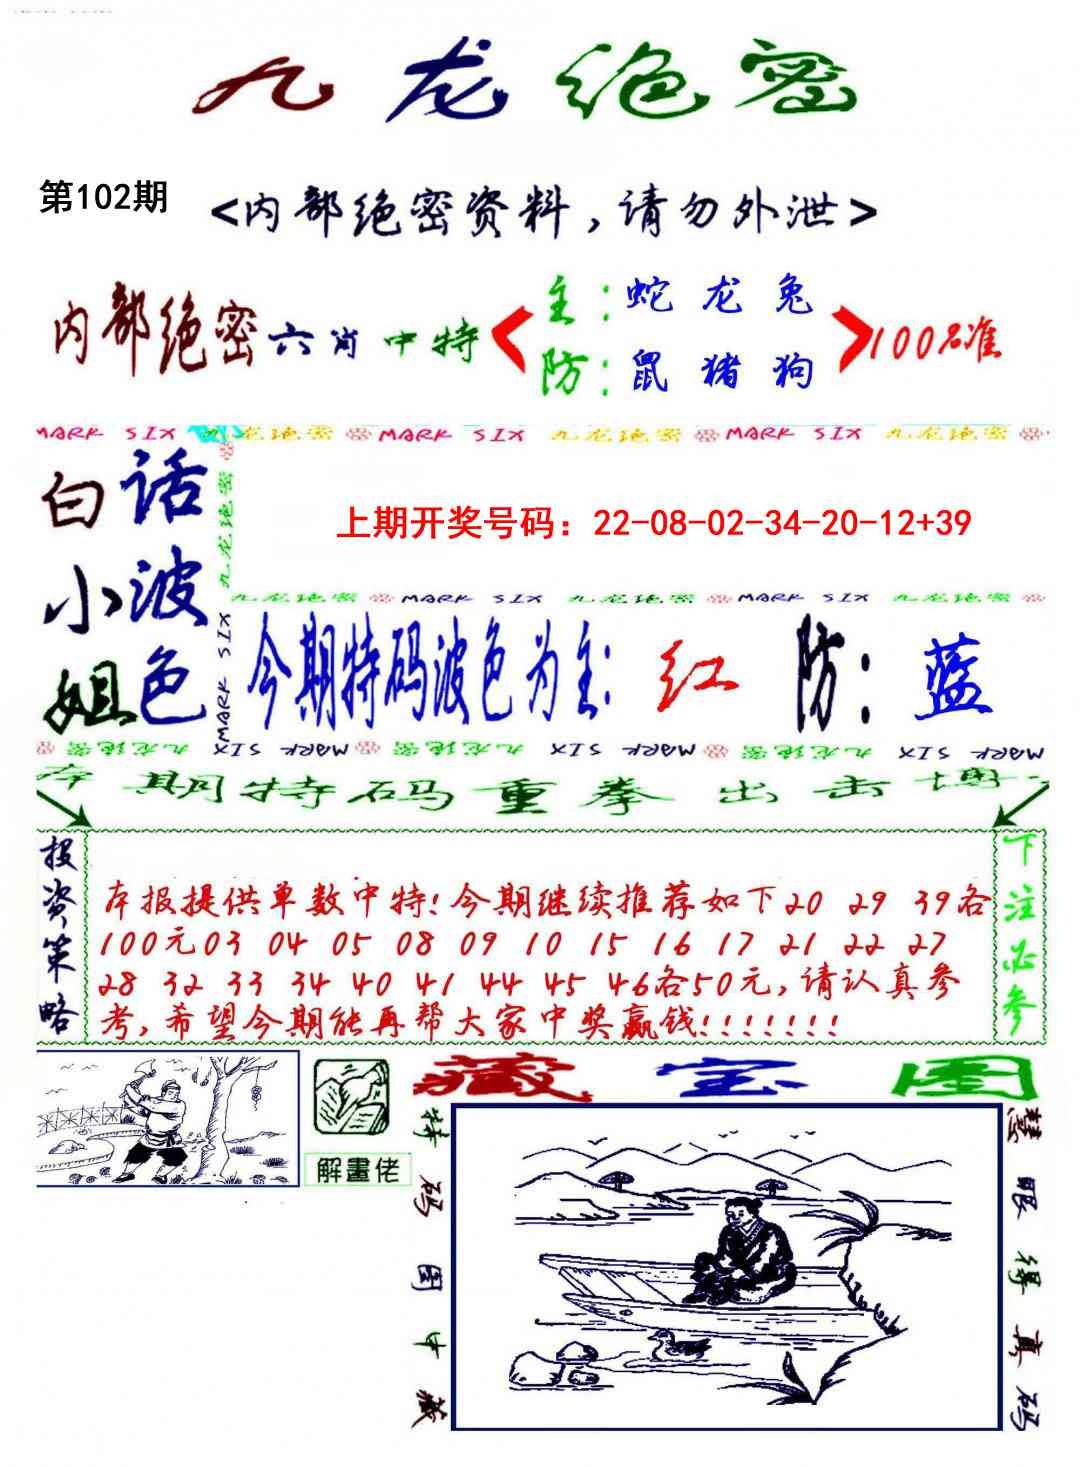 九龙绝密
第102期
<内部绝密资料,请勿外泄>
内部绝密六肖中特
主:蛇 龙 兔
防:鼠 猪 狗
100%准
MARK SIX 九龙绝密 MARK SIX 九龙绝密 MARK SIX 九龙绝密
九龙绝密
MARK SIX
MARK SIX
白小姐
话波色
上期开奖号码：22-08-02-34-20-12+39
九龙绝密 MARK SIX 九龙绝密 MARK SIX 九龙绝密
今期特码波色为主:红 防:蓝
九龙绝密 MARK SIX 九龙绝密 MARK SIX 九龙绝密 MARK SIX
本期特码重拳出击博
投资策略
本报提供单数中特!今期继续推荐如下20 29 39各
100元03 04 05 08 09 10 15 16 17 21 22 27
28 32 33 34 40 41 44 45 46各50元,请认真参
考,希望今期能再帮大家中奖赢钱!!!!!!!
下注必参
解畫佬
藏宝图
特码图中藏
慧眼得真码